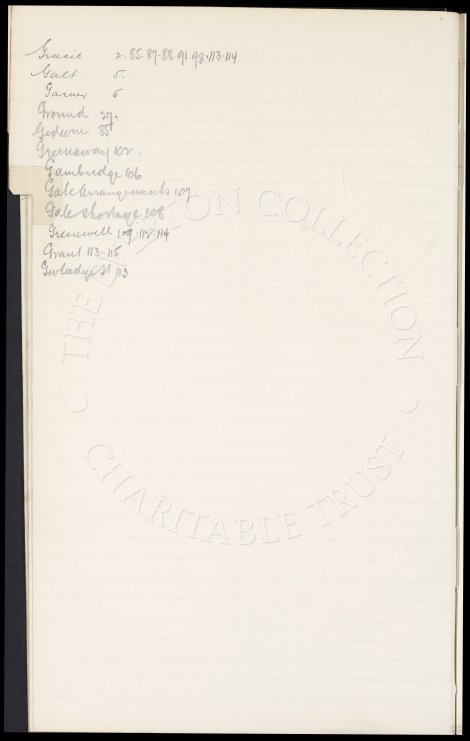 Gracie 2. 85. 87. 88. 91. 98. 113. 114
Galt 5.
Garner 6
Ground 27.
Godwin 85
Greenaway 102.
Gambridge 106
Gate Arrangements 107
Gate shortage 108
Greenwell 109. 112. 114
Grant 113-115
Gwladys St 113
THE EVERTON COLLECTION
CHARITABLE TRUST